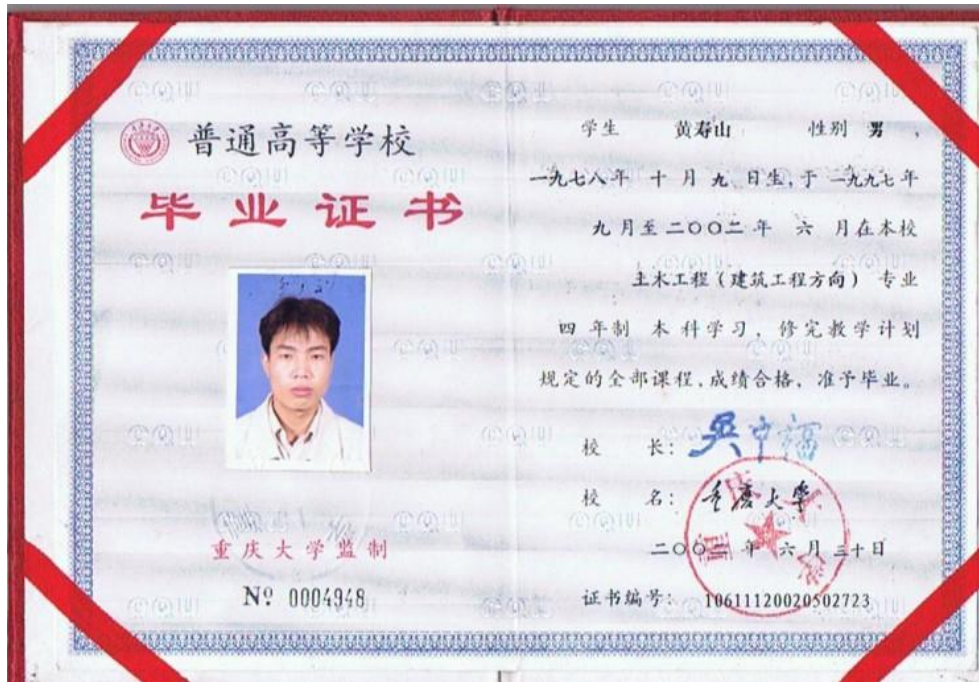 普通高等学校
毕业证书
重庆大学监制
Nº 0004948
学生 黄寿山 性别 男，
一九七八年 十 月 九 日生，于 一九九七年
九 月至二〇〇二年 六 月在本校
土木工程（建筑工程方向） 专业
四 年制 本 科学习，修完教学计划
规定的全部课程，成绩合格，准予毕业。
校 长： 吴中福
校 名： 重庆大学
二〇〇二年 六 月 三十日
证书编号： 10611120020502723